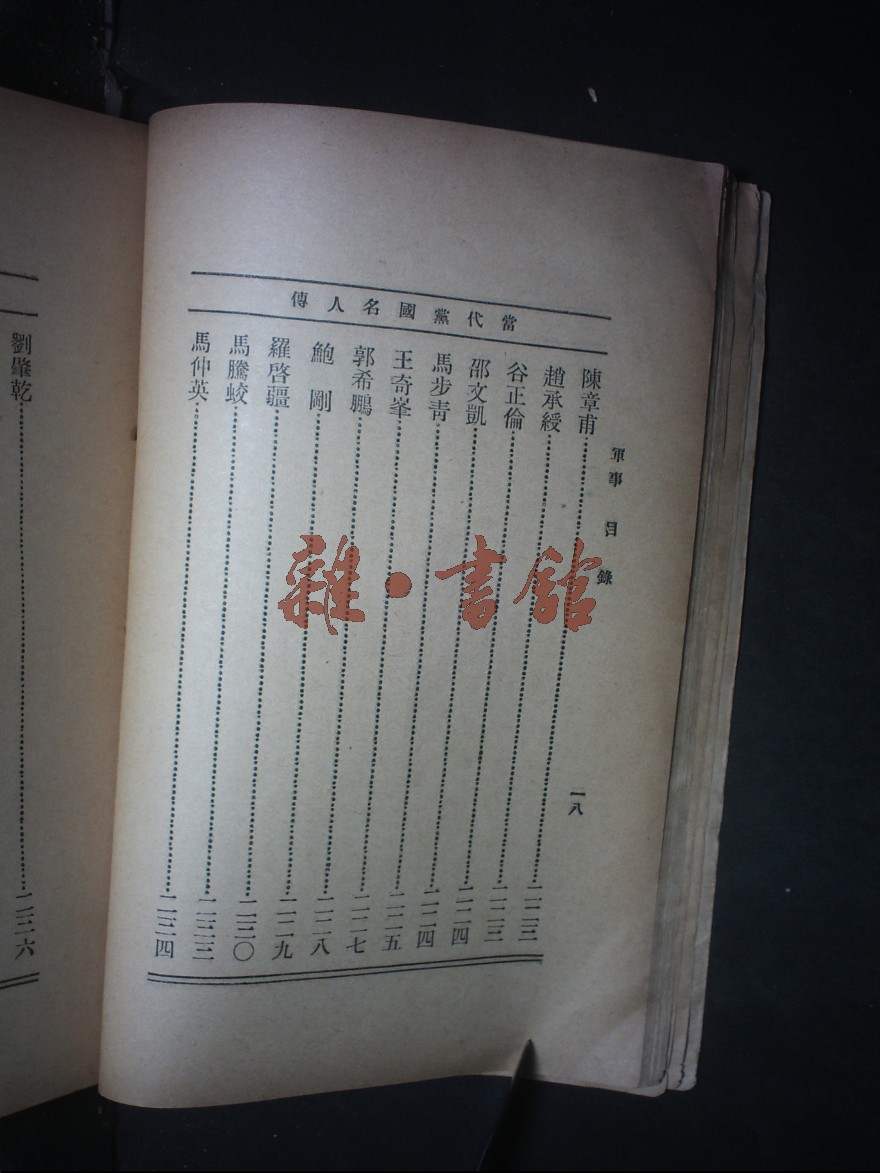 當代黨國名人傳
軍事目錄 一八
陳章甫……二二三
趙承綬……二二三
谷正倫……二二四
邵文凱……二二四
馬步青……二二五
王奇峯……二二七
郭希鵬……二二八
鮑剛……二二九
羅啓疆……二三〇
馬騰蛟……二三三
馬仲英……二三四
劉肇乾……二三六
雜·書館